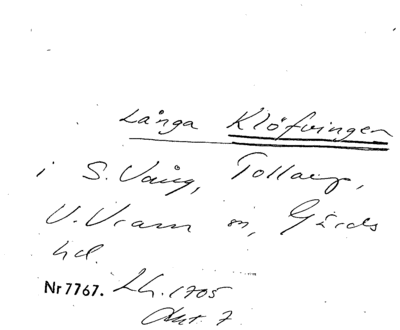 Långa Klöfvingen
i S. Vång, Tollarp,
V. Vram m, Gärds
hd.
Nr 7767. Lh. 1705
Akt. 7